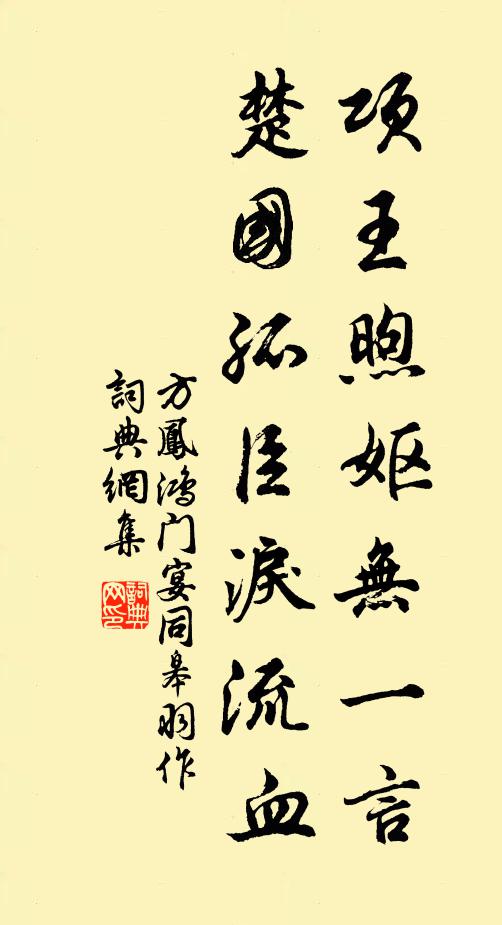 项王煦妪無一言
楚國孤臣淚流血
方鳳鴻门宴同皋羽作
詞典網集
詞典
网印